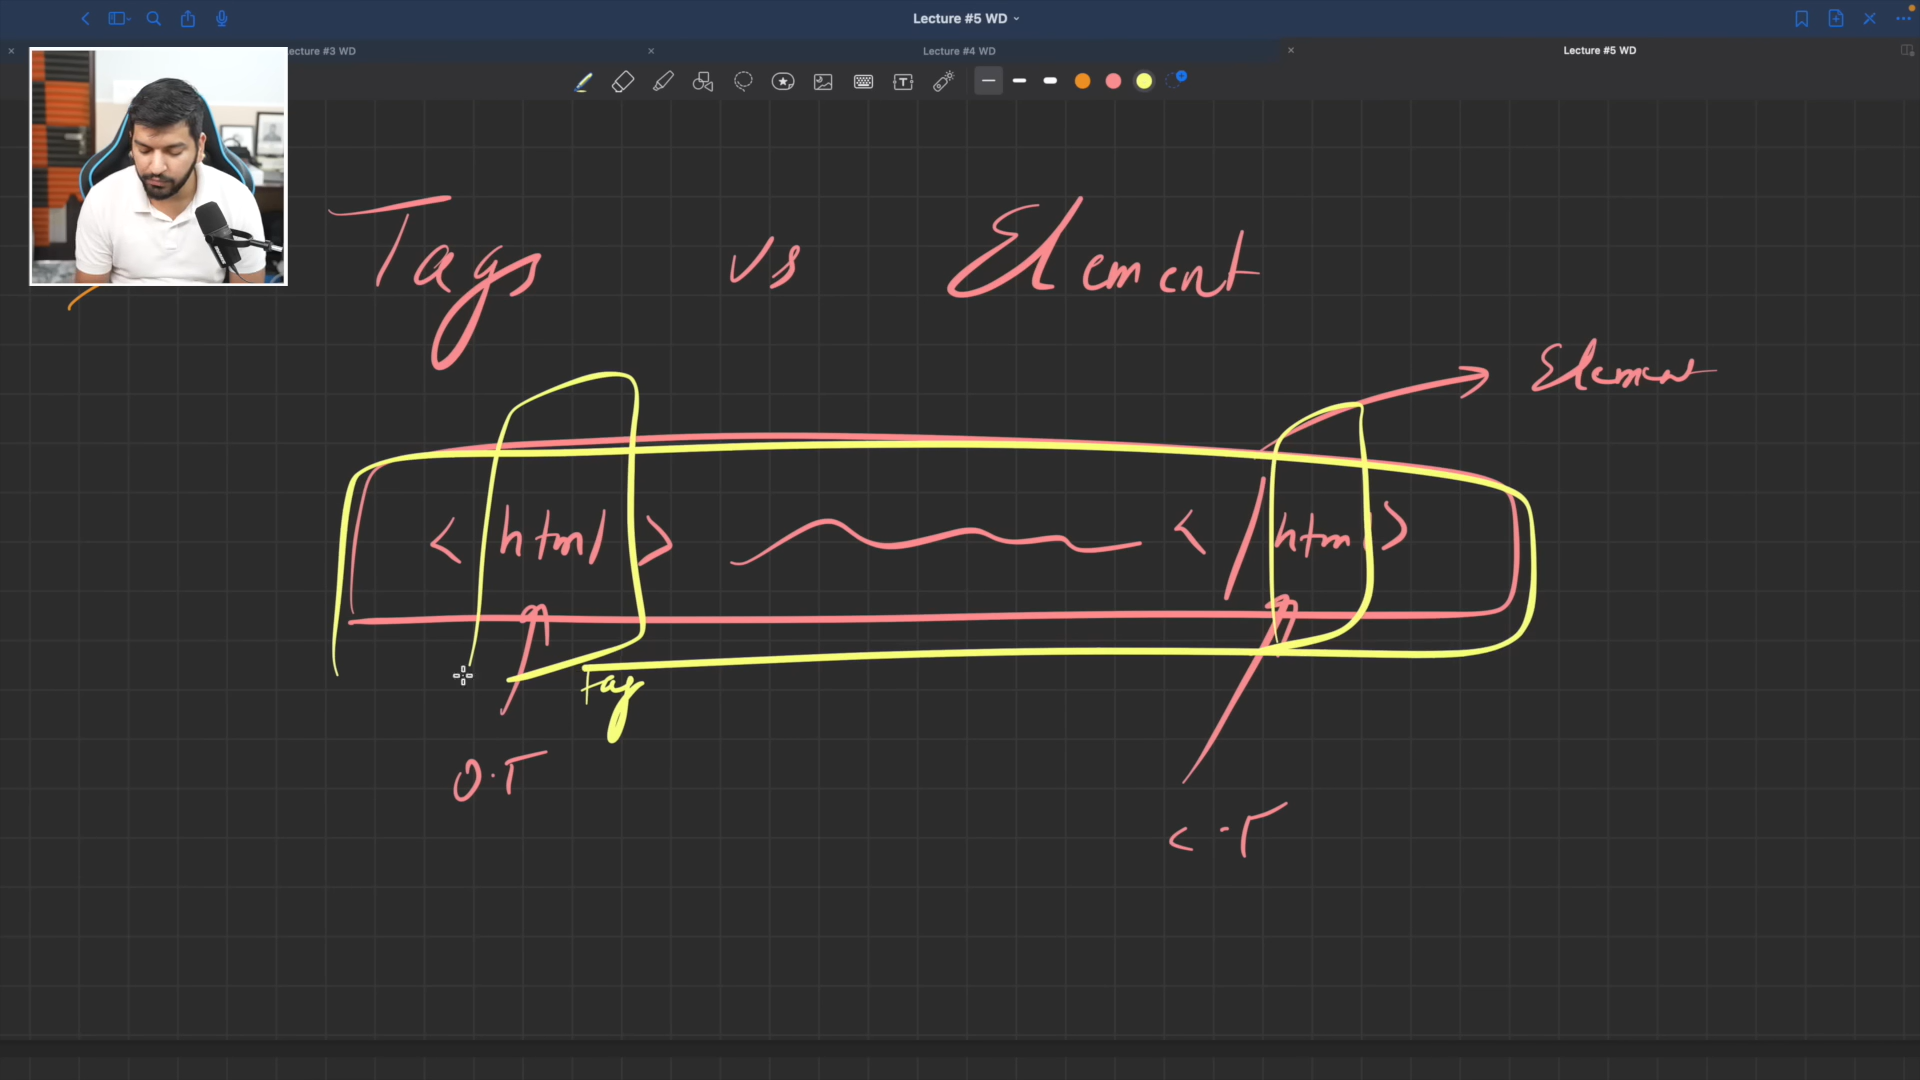 Lecture #5 WD
ecture #3 WD
Lecture #4 WD
Lecture #5 WD
Tags vs Element
Element
<html> </html>
Tag
O.T
C.T